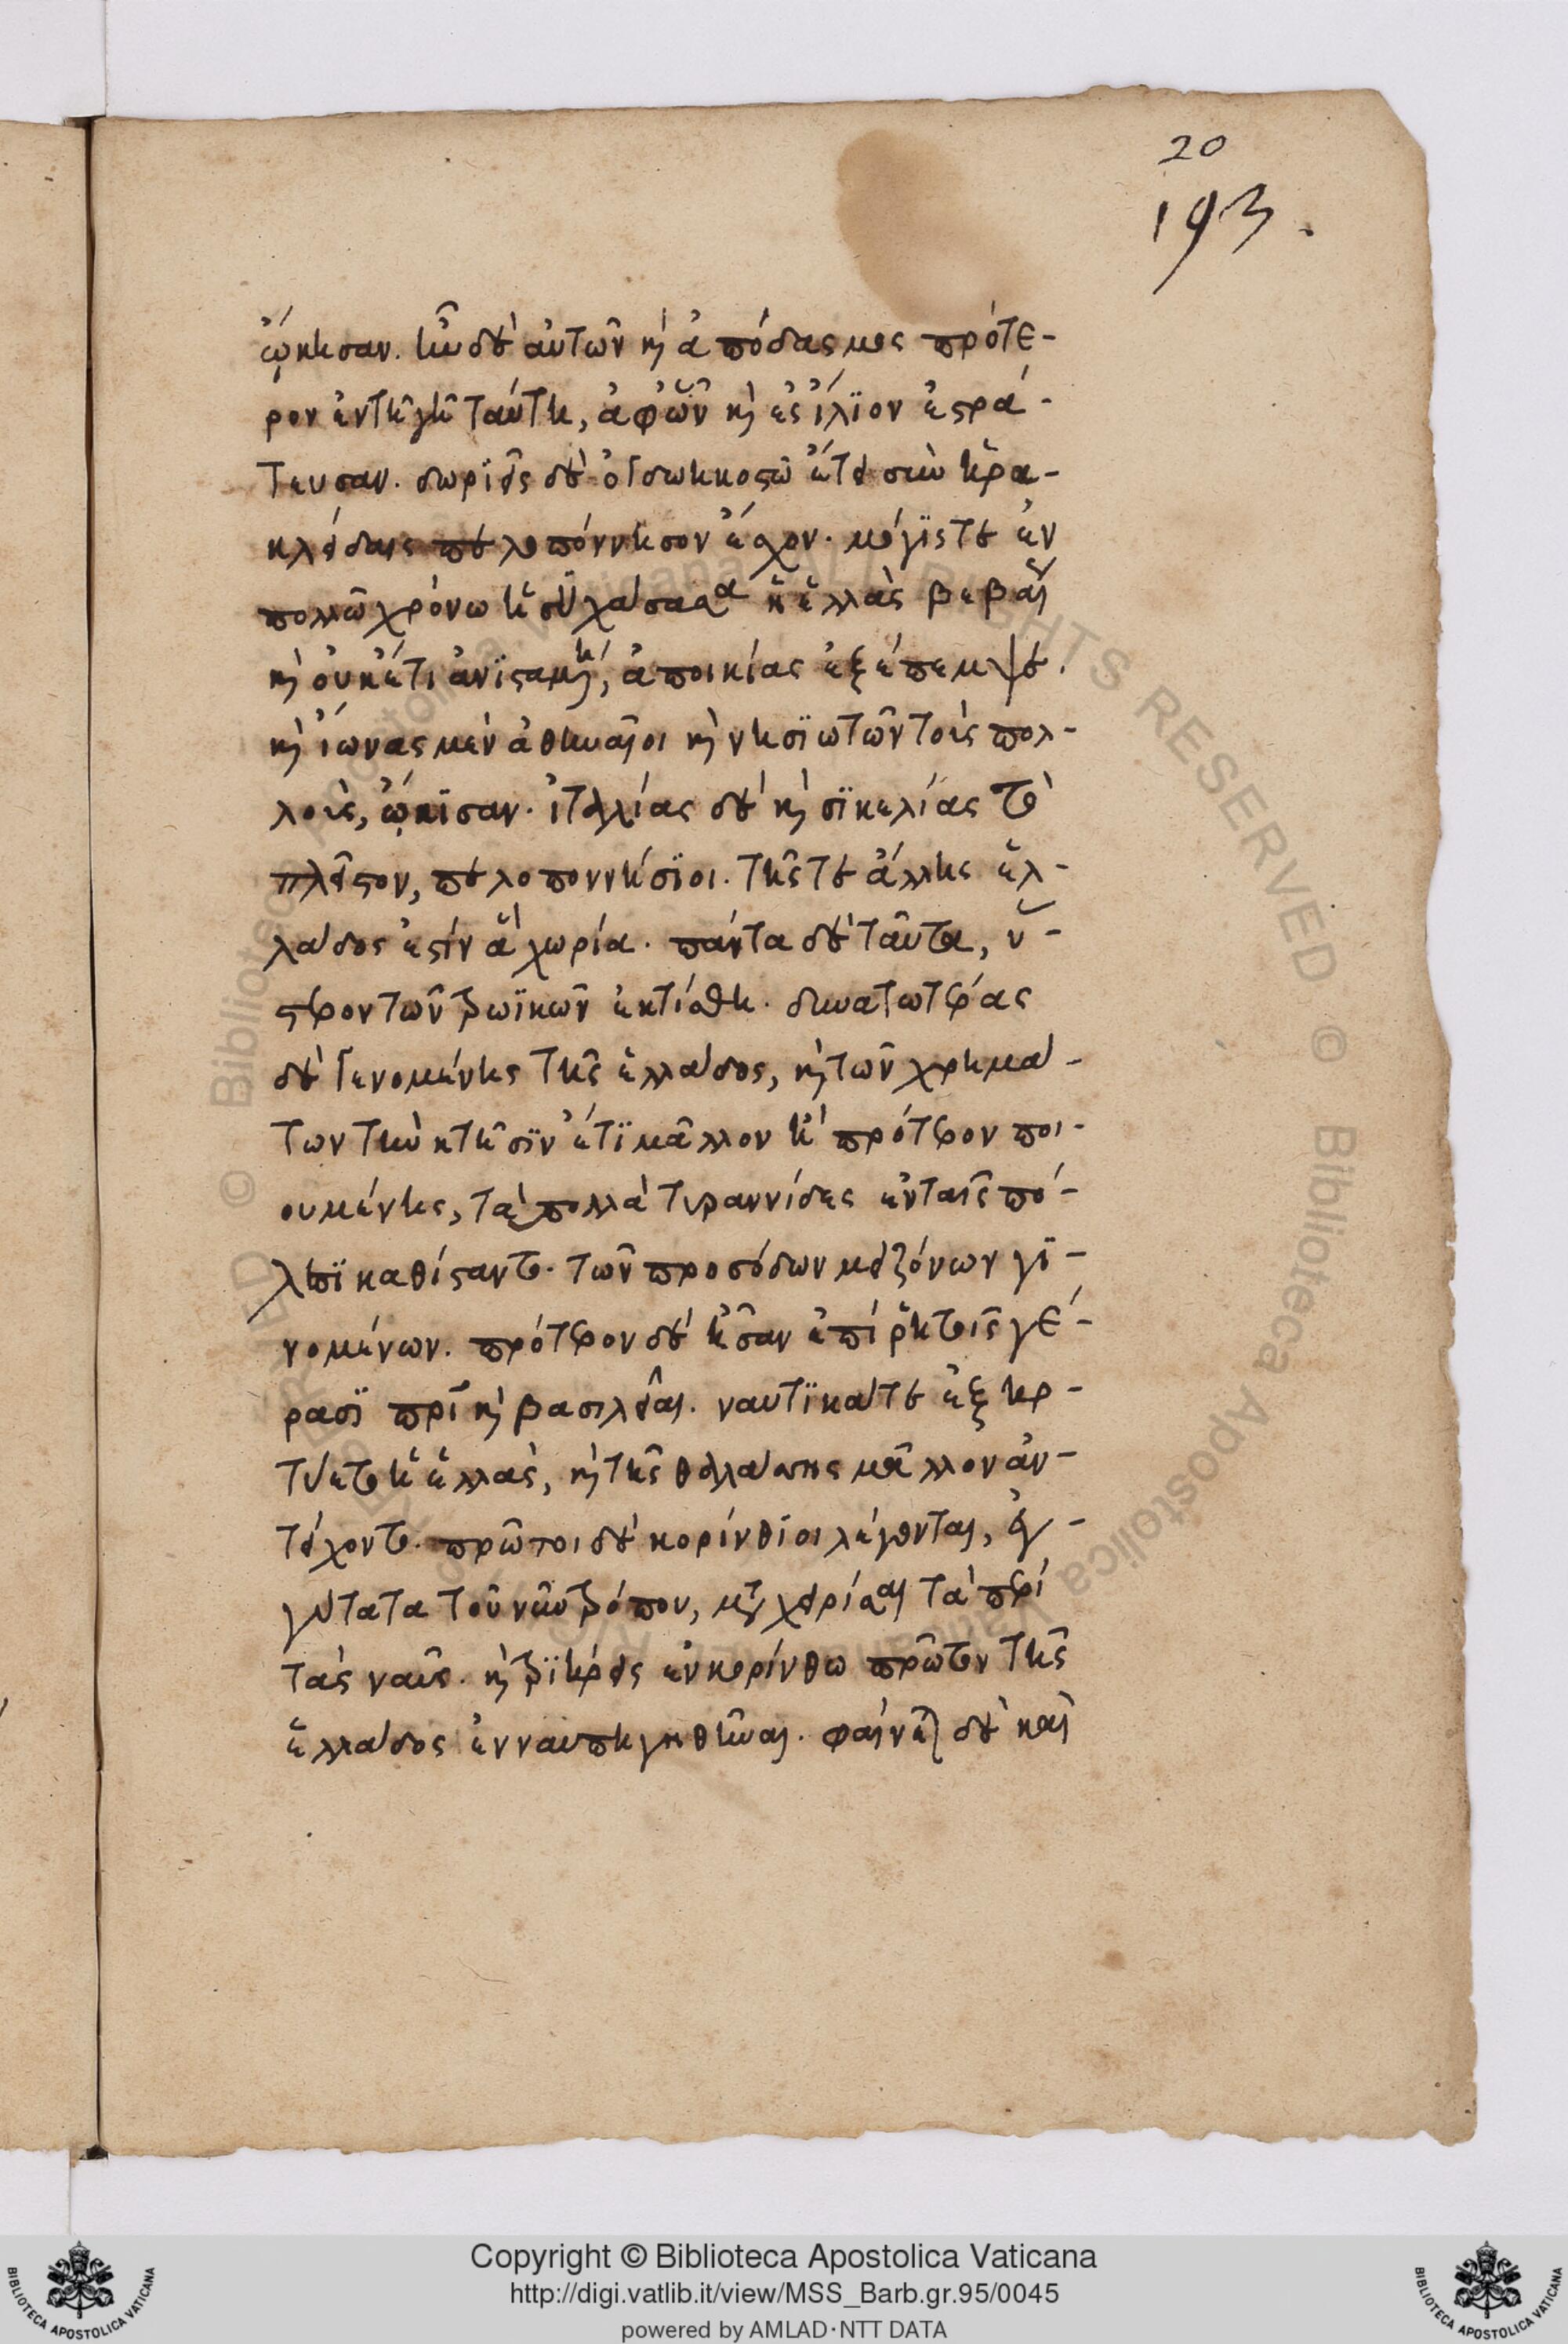 20
193.
ᾤκησαν. ἦν δὲ αὐτῶν καὶ ἀποδασμος πρότε-
ρον ἐν τῆ γῆ ταύτη, ἀφ᾽ ὧν καὶ ἐς ἴλϊον ἐστρά-
τευσαν. δωρϊεῖς δὲ ὀγδωηκοστῶ ἔτει σὺν ἡρα-
κλείδαις πελοπόννησον ἔσχον. μόγϊς τε ἐν
πολλῶ χρόνω ἡσυχάσασα ἡ ἑλλὰς βεβαί
καὶ οὐκέτι ἀνϊσταμένη, ἀποικίας ἐξέπεμψε.
καὶ ἴωνας μὲν ἀθηναῖοι καὶ νησϊωτῶν τοὺς πολ-
λοὺς, ᾤκϊσαν. ἰταλίας δὲ καὶ σϊκελίας τὸ
πλεῖστον, πελοποννήσϊοι. τῆς τε ἄλλης ἑλ-
λάδος ἐστὶν ἃ χωρία. πάντα δὲ ταῦτα, ὕ-
στερον τῶν τρωϊκῶν ἐκτίσθη. δυνατωτέρας
δὲ γενομένης τῆς ἑλλάδος, καὶ τῶν χρημά-
των τὴν κτῆσϊν ἔτϊ μᾶλλον ἢ πρότερον ποι-
ουμένης, τὰ πολλὰ τυραννίδες ἐν ταῖς πό-
λεσϊ καθίσταντο. τῶν προσόδων μειζόνων γϊ-
νομένων. πρότερον δὲ ἦσαν ἐπὶ ῥητοῖς γέ-
ρασϊ πατρικαὶ βασιλεῖαι. ναυτϊκά τε ἐξηρ-
τύετο ἡ ἑλλὰς, καὶ τῆς θαλάσσης μᾶλλον ἀν-
τείχοντο. πρῶτοι δὲ κορίνθϊοι λέγονται, ἐγ-
γύτατα τοῦ νῦν τρόπου, μεταχειρίσαι τὰ περὶ
τὰς ναῦς. καὶ τρϊήρεις ἐν κορίνθω πρῶτον τῆς
ἑλλάδος ἐνναυπηγηθῆναι. φαίνεται δὲ καὶ
Copyright © Biblioteca Apostolica Vaticana
http://digi.vatlib.it/view/MSS_Barb.gr.95/0045
powered by AMLAD·NTT DATA